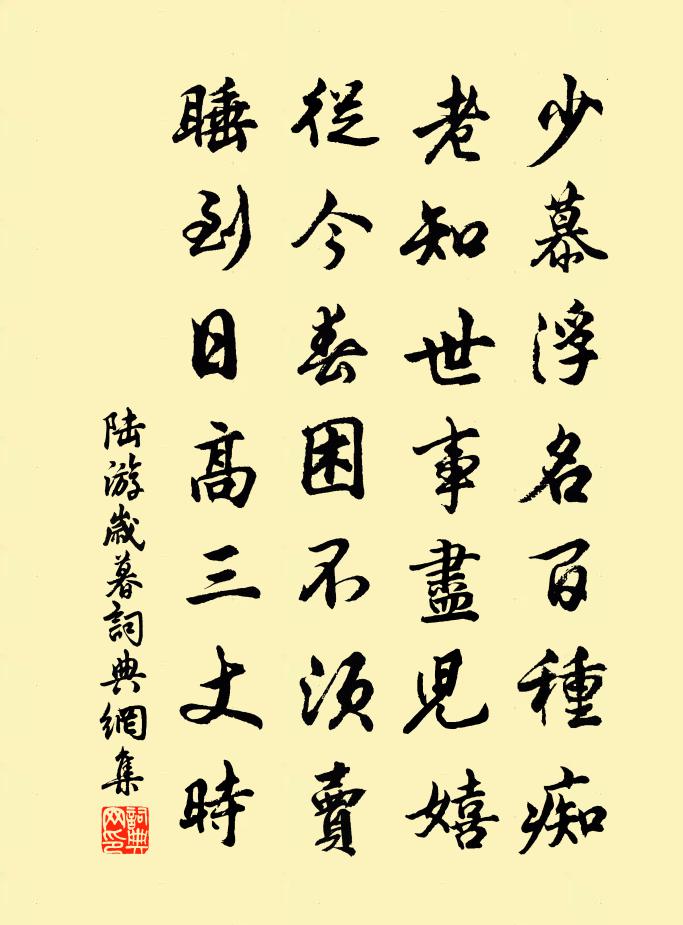 少慕浮名百種痴
老知世事盡児嬉
從今春困不須賣
睡到日高三丈時
陆游歲暮詞典網集
詞典网印